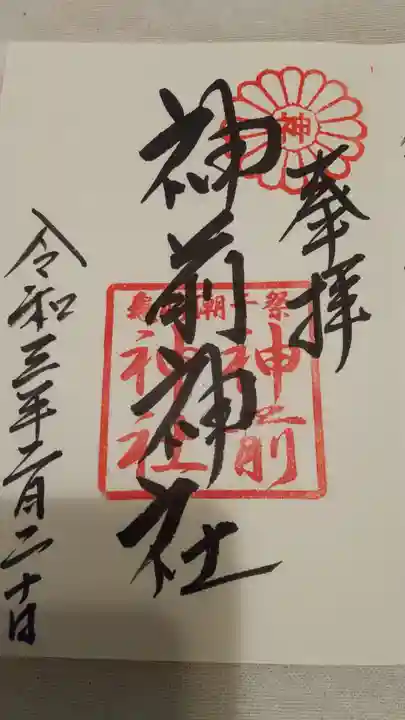 奉拝
神
神前神社
潮子祭
神前
神社
令和三年二月二十日